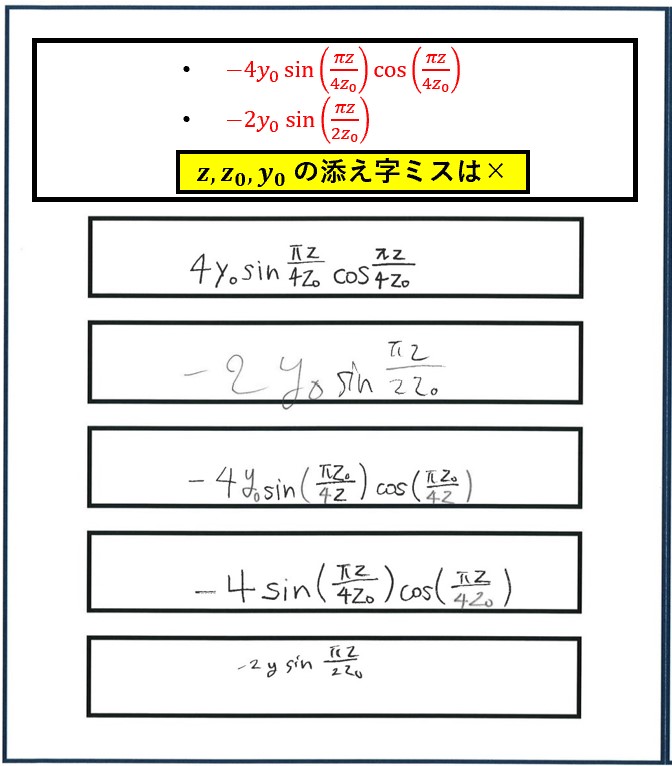 • −4y₀ sin(πz/4z₀) cos(πz/4z₀)
• −2y₀ sin(πz/2z₀)
z, z₀, y₀ の添え字ミスは×
4y₀ sin πz/4z₀ cos πz/4z₀
−2 y₀ sin πz/2z₀
−4y₀ sin(πz₀/4z) cos(πz₀/4z)
−4 sin(πz/4z₀) cos(πz/4z₀)
−2 y sin πz/2z₀